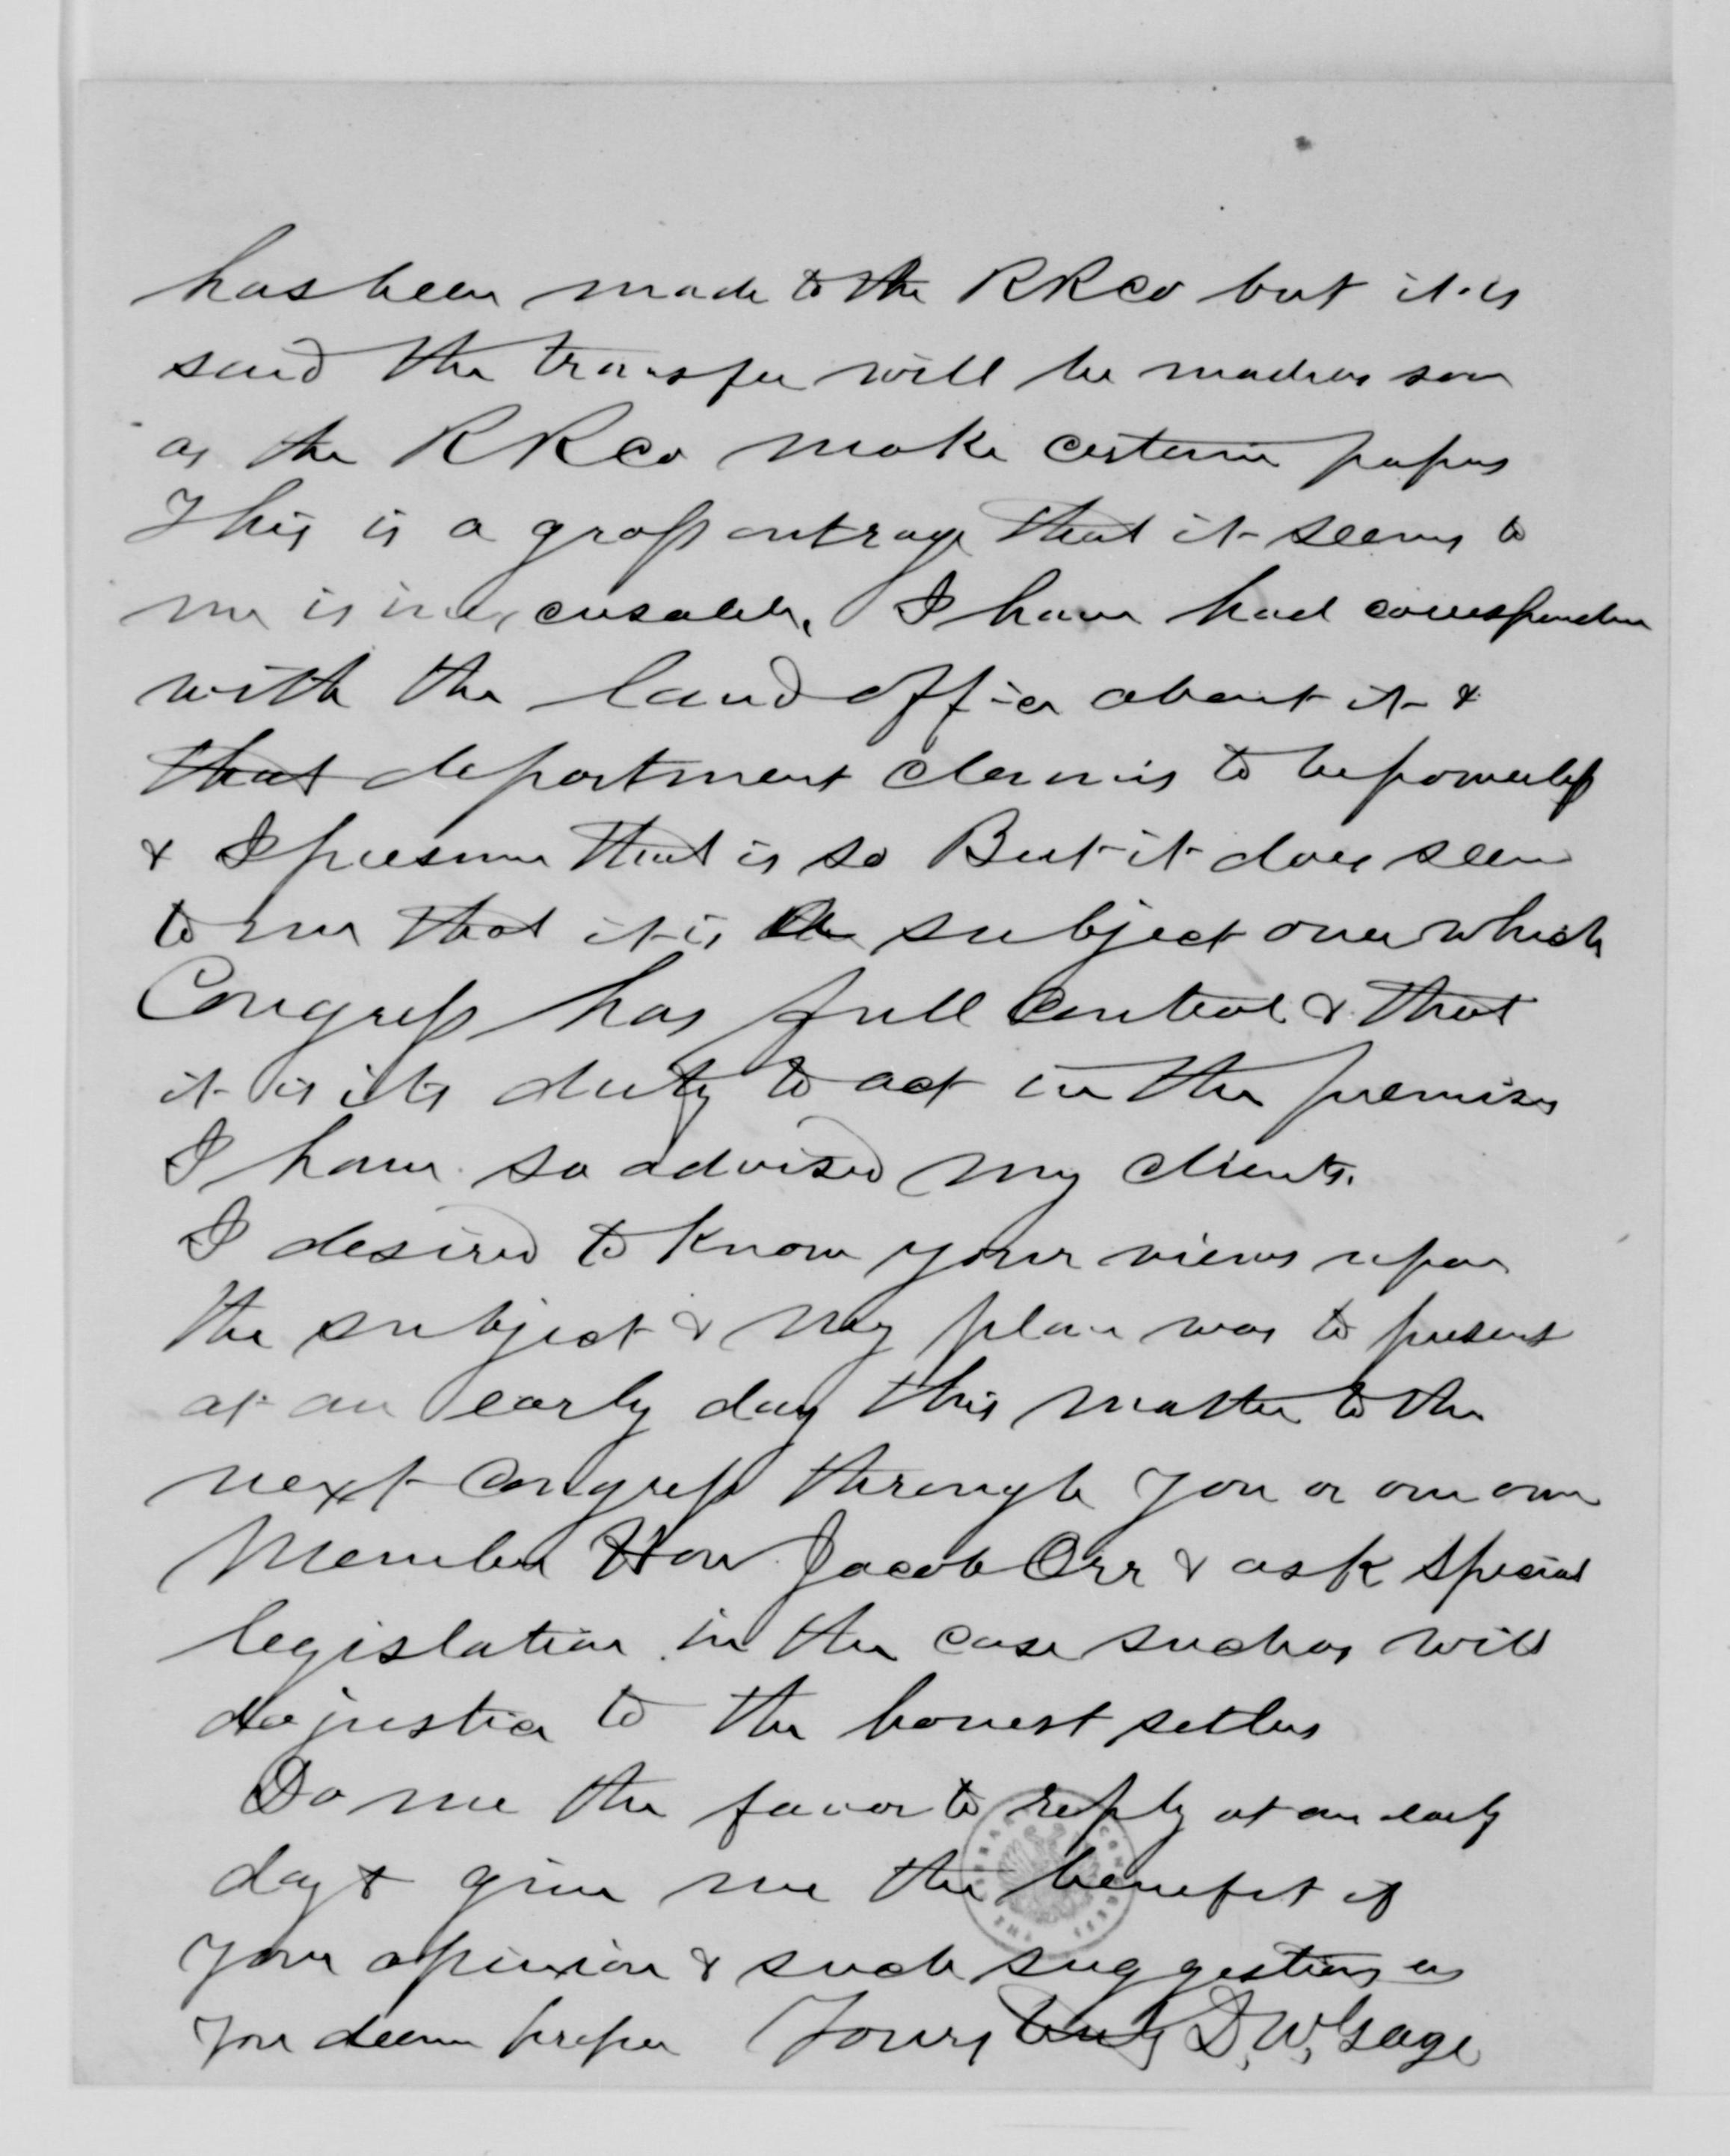 has been made to the RRCo but it is
said the transfer will be made as soon
as the RRCo make certain papers
This is a gross outrage that it seems to
me is inexcusable. I have had correspondence
with the land office about it &
that department claims to be powerless
& I presume that is so But it does seem
to me that it is a subject over which
Congress has full control & that
it is its duty to act in the premises
I have so advised my clients.
I desired to know your views upon
the subject & my plan was to present
at an early day this matter to the
next Congress through you or our own
Member Hon Jacob Orr & ask special
legislation in the case such as will
do justice to the honest settlers
Do me the favor to reply at an early
day & give me the benefit of
your opinion & such suggestions as
you deem proper Yours truly D. W. Gage